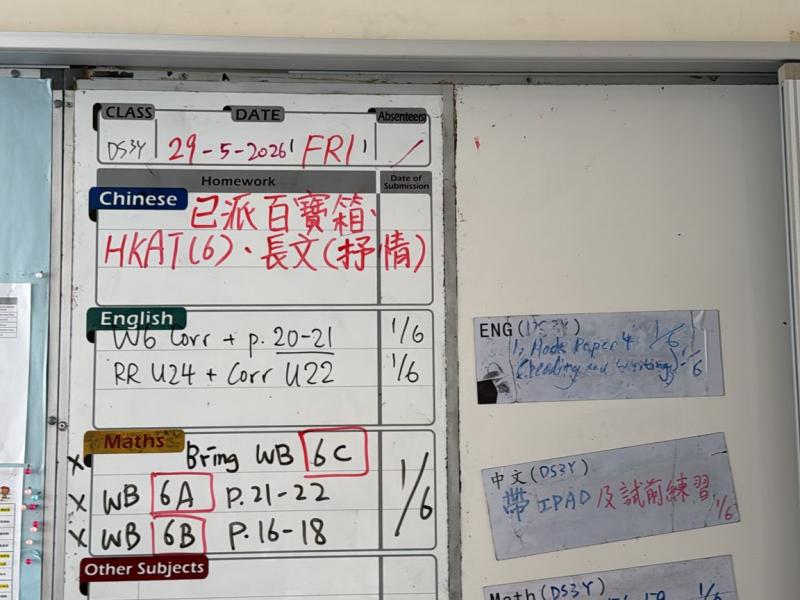 CLASS DATE Absentees
DS3Y 29-5-2026 FRI /
Homework Date of Submission
Chinese 已派百寶箱、
HKAT(6)、長文(抒情)
English
WB Corr + p. 20-21 1/6
RR U24 + Corr U22 1/6
Maths
x Bring WB 6C
x WB 6A P.21-22 1/6
x WB 6B P.16-18
Other Subjects
ENG (DS3Y)
1, Mock Paper 4 1/6
(reading and writing) 1/6
中文(DS3Y)
帶 IPAD 及試前練習 1/6
Math (DS3Y)
1/6